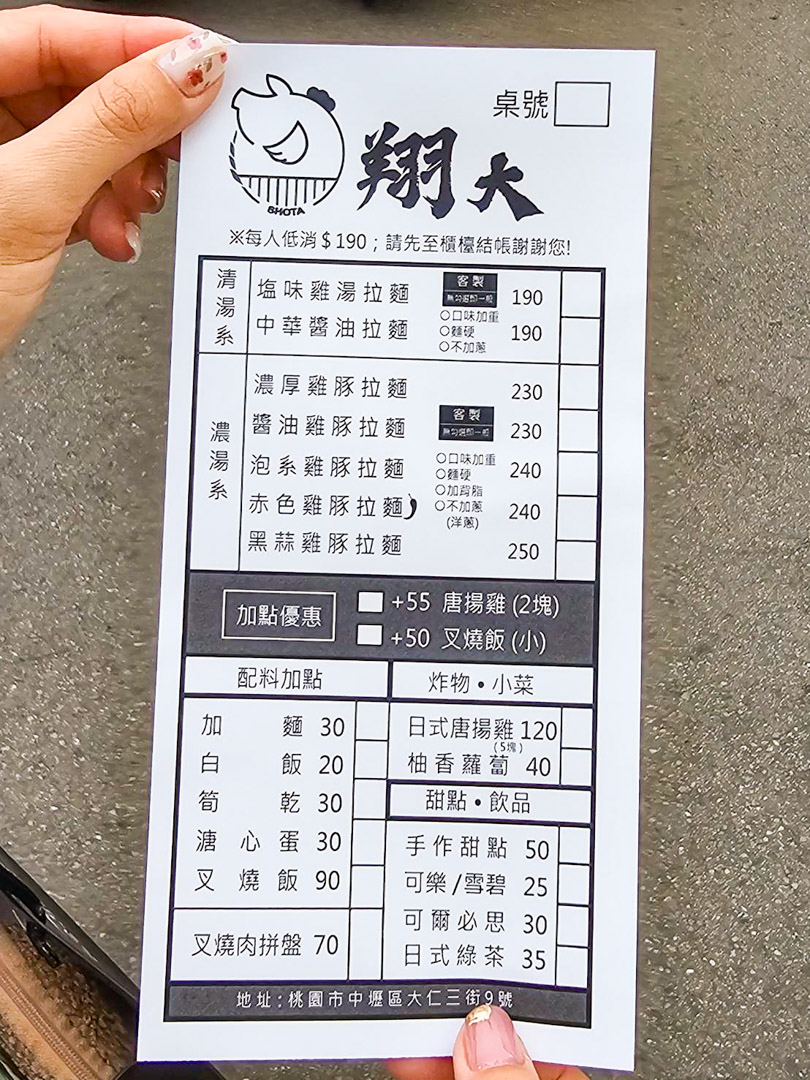 桌號
SHOTA
翔大
※每人低消$190；請先至櫃檯結帳謝謝您!
清湯系
塩味雞湯拉麵 190
中華醬油拉麵 190
客製
無勾選即一般
○口味加重
○麵硬
○不加蔥
濃湯系
濃厚雞豚拉麵 230
醬油雞豚拉麵 230
泡系雞豚拉麵 240
赤色雞豚拉麵 240
黑蒜雞豚拉麵 250
客製
無勾選即一般
○口味加重
○麵硬
○加背脂
○不加蔥
(洋蔥)
加點優惠
+55 唐揚雞(2塊)
+50 叉燒飯(小)
配料加點
加麵 30
白飯 20
筍乾 30
溏心蛋 30
叉燒飯 90
叉燒肉拼盤 70
炸物•小菜
日式唐揚雞 120
(5塊)
柚香蘿蔔 40
甜點•飲品
手作甜點 50
可樂/雪碧 25
可爾必思 30
日式綠茶 35
地址:桃園市中壢區大仁三街9號